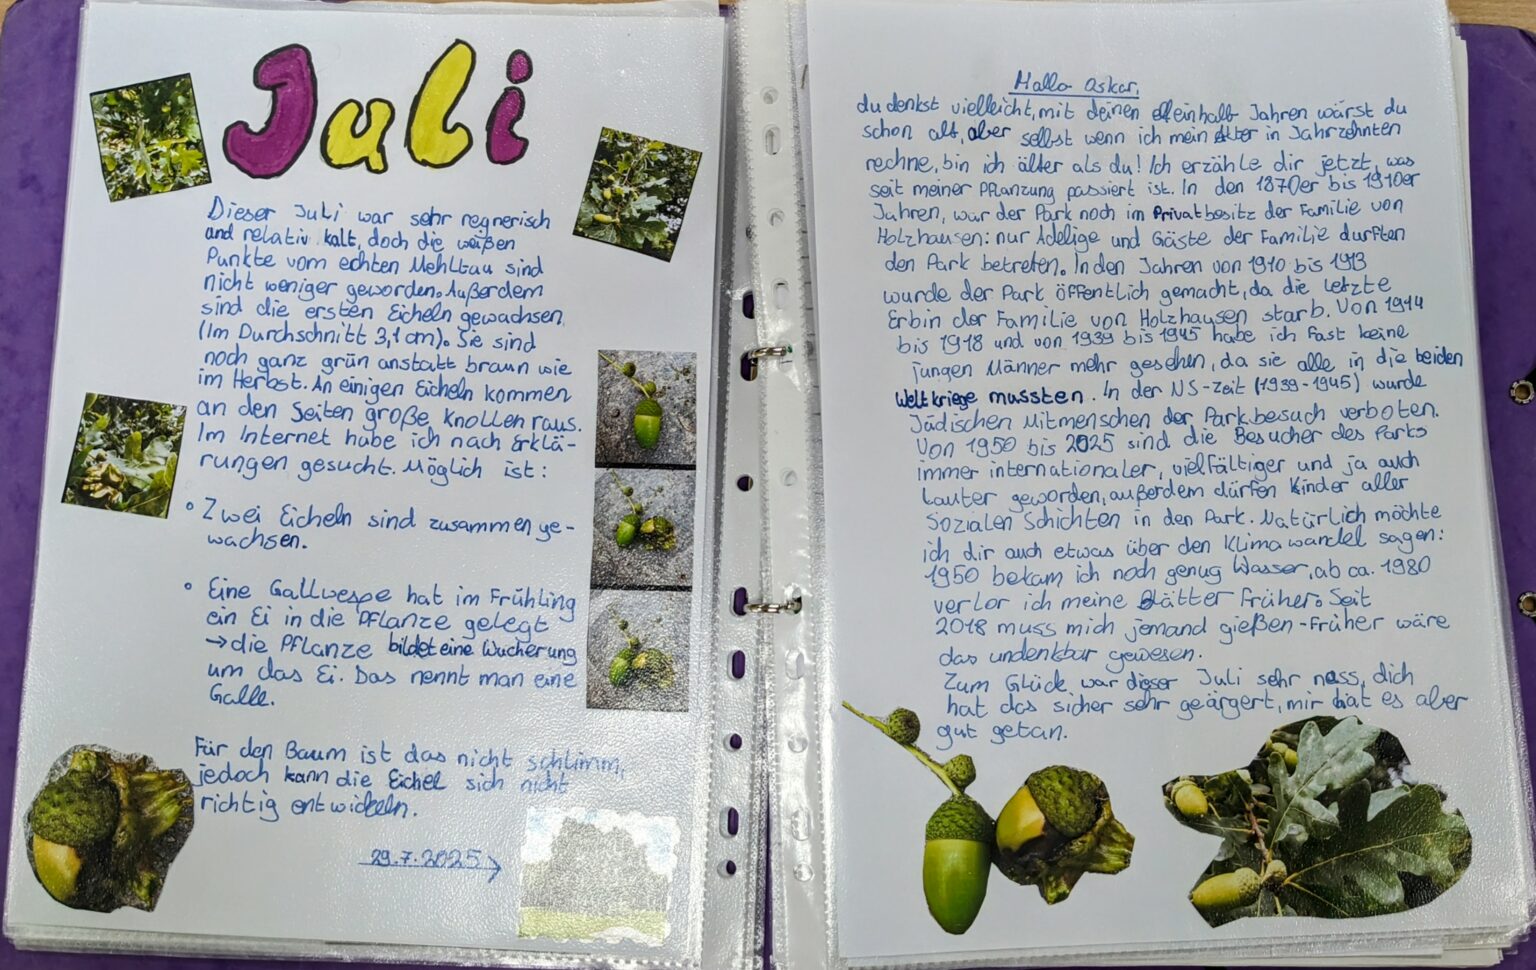 Juli
Dieser Juli war sehr regnerisch
und relativ kalt, doch die weißen
Punkte vom echten Mehltau sind
nicht weniger geworden. Außerdem
sind die ersten Eicheln gewachsen.
(Im Durchschnitt 3,1 cm). Sie sind
noch ganz grün anstatt braun wie
im Herbst. An einigen Eicheln kommen
an den Seiten große Knollen raus.
Im Internet habe ich nach Erklä-
rungen gesucht. Möglich ist:
• Zwei Eicheln sind zusammen ge-
wachsen.
• Eine Gallwespe hat im Frühling
ein Ei in die Pflanze gelegt
→ die Pflanze bildet eine Wucherung
um das Ei. Das nennt man eine
Galle.
Für den Baum ist das nicht schlimm,
jedoch kann die Eichel sich nicht
richtig entwickeln.
29.7.2025
Hallo Oskar,
du denkst vielleicht, mit deinen elfeinhalb Jahren wärst du
schon alt, aber selbst wenn ich mein Alter in Jahrzehnten
rechne, bin ich älter als du! Ich erzähle dir jetzt, was
seit meiner Pflanzung passiert ist. In den 1870er bis 1910er
Jahren, war der Park noch im Privatbesitz der Familie von
Holzhausen: nur Adelige und Gäste der Familie durften
den Park betreten. In den Jahren von 1910 bis 1913
wurde der Park öffentlich gemacht, da die letzte
Erbin der Familie von Holzhausen starb. Von 1914
bis 1918 und von 1939 bis 1945 habe ich fast keine
jungen Männer mehr gesehen, da sie alle in die beiden
Weltkriege mussten. In der NS-Zeit (1939-1945) wurde
Jüdischen Mitmenschen der Parkbesuch verboten.
Von 1950 bis 2025 sind die Besucher des Parks
immer internationaler, vielfältiger und ja auch
Lauter geworden, außerdem dürfen Kinder aller
Sozialen Schichten in den Park. Natürlich möchte
ich dir auch etwas über den Klimawandel sagen:
1950 bekam ich noch genug Wasser, ab ca. 1980
verlor ich meine Blätter früher. Seit
2018 muss mich jemand gießen - Früher wäre
das undenkbar gewesen.
Zum Glück war dieser Juli sehr nass, dich
hat das sicher sehr geärgert, mir hat es aber
gut getan.